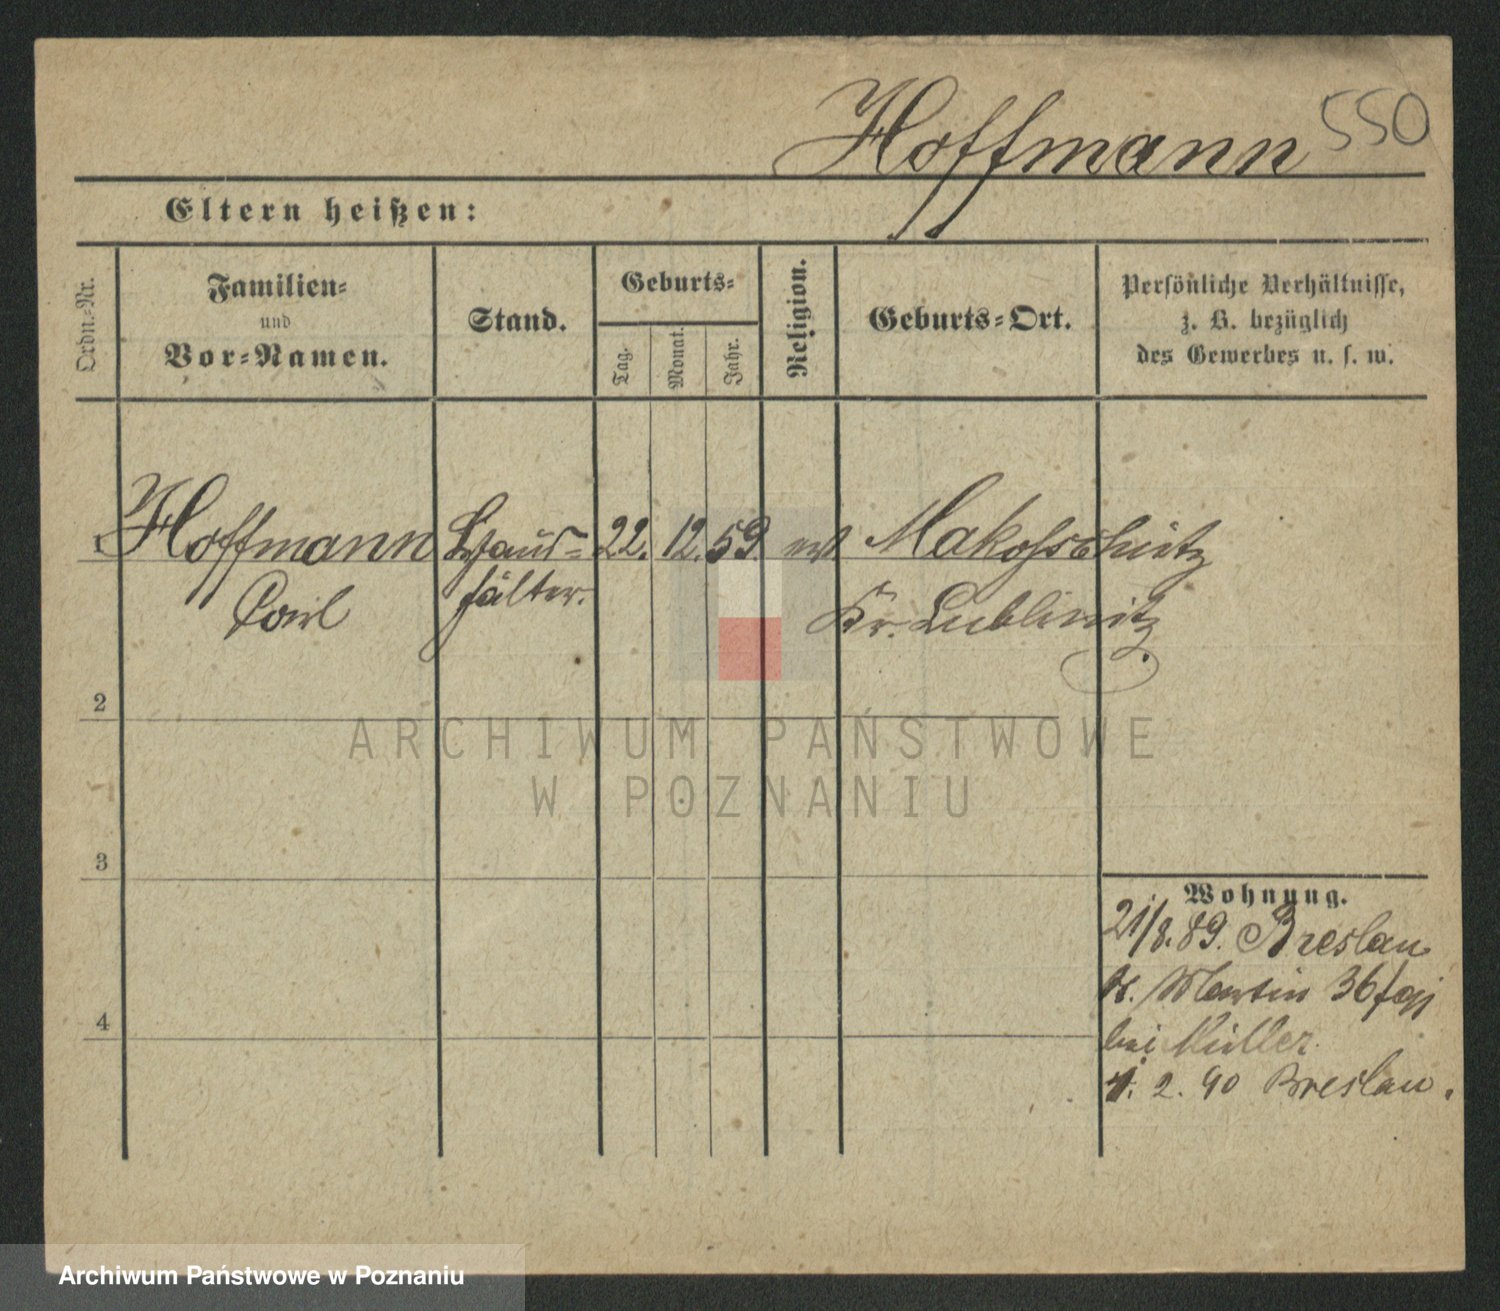 Hoffmann 550
Eltern heißen:
Ordn.-Nr.
Familien-
und
Vor-Namen.
Stand.
Geburts-
Tag.
Monat.
Jahr.
Religion.
Geburts-Ort.
Persönliche Verhältnisse,
z. B. bezüglich
des Gewerbes u. s. w.
1 Hoffmann 22. 12. 59.
Carl hälter.
Kr. Lublinitz
2
3
4
Wohnung.
21/8. 89. Breslau
St. Martin 36
bei Müller
1. 2. 90 Breslau.
ARCHIWUM PAŃSTWOWE
W POZNANIU
Archiwum Państwowe w Poznaniu